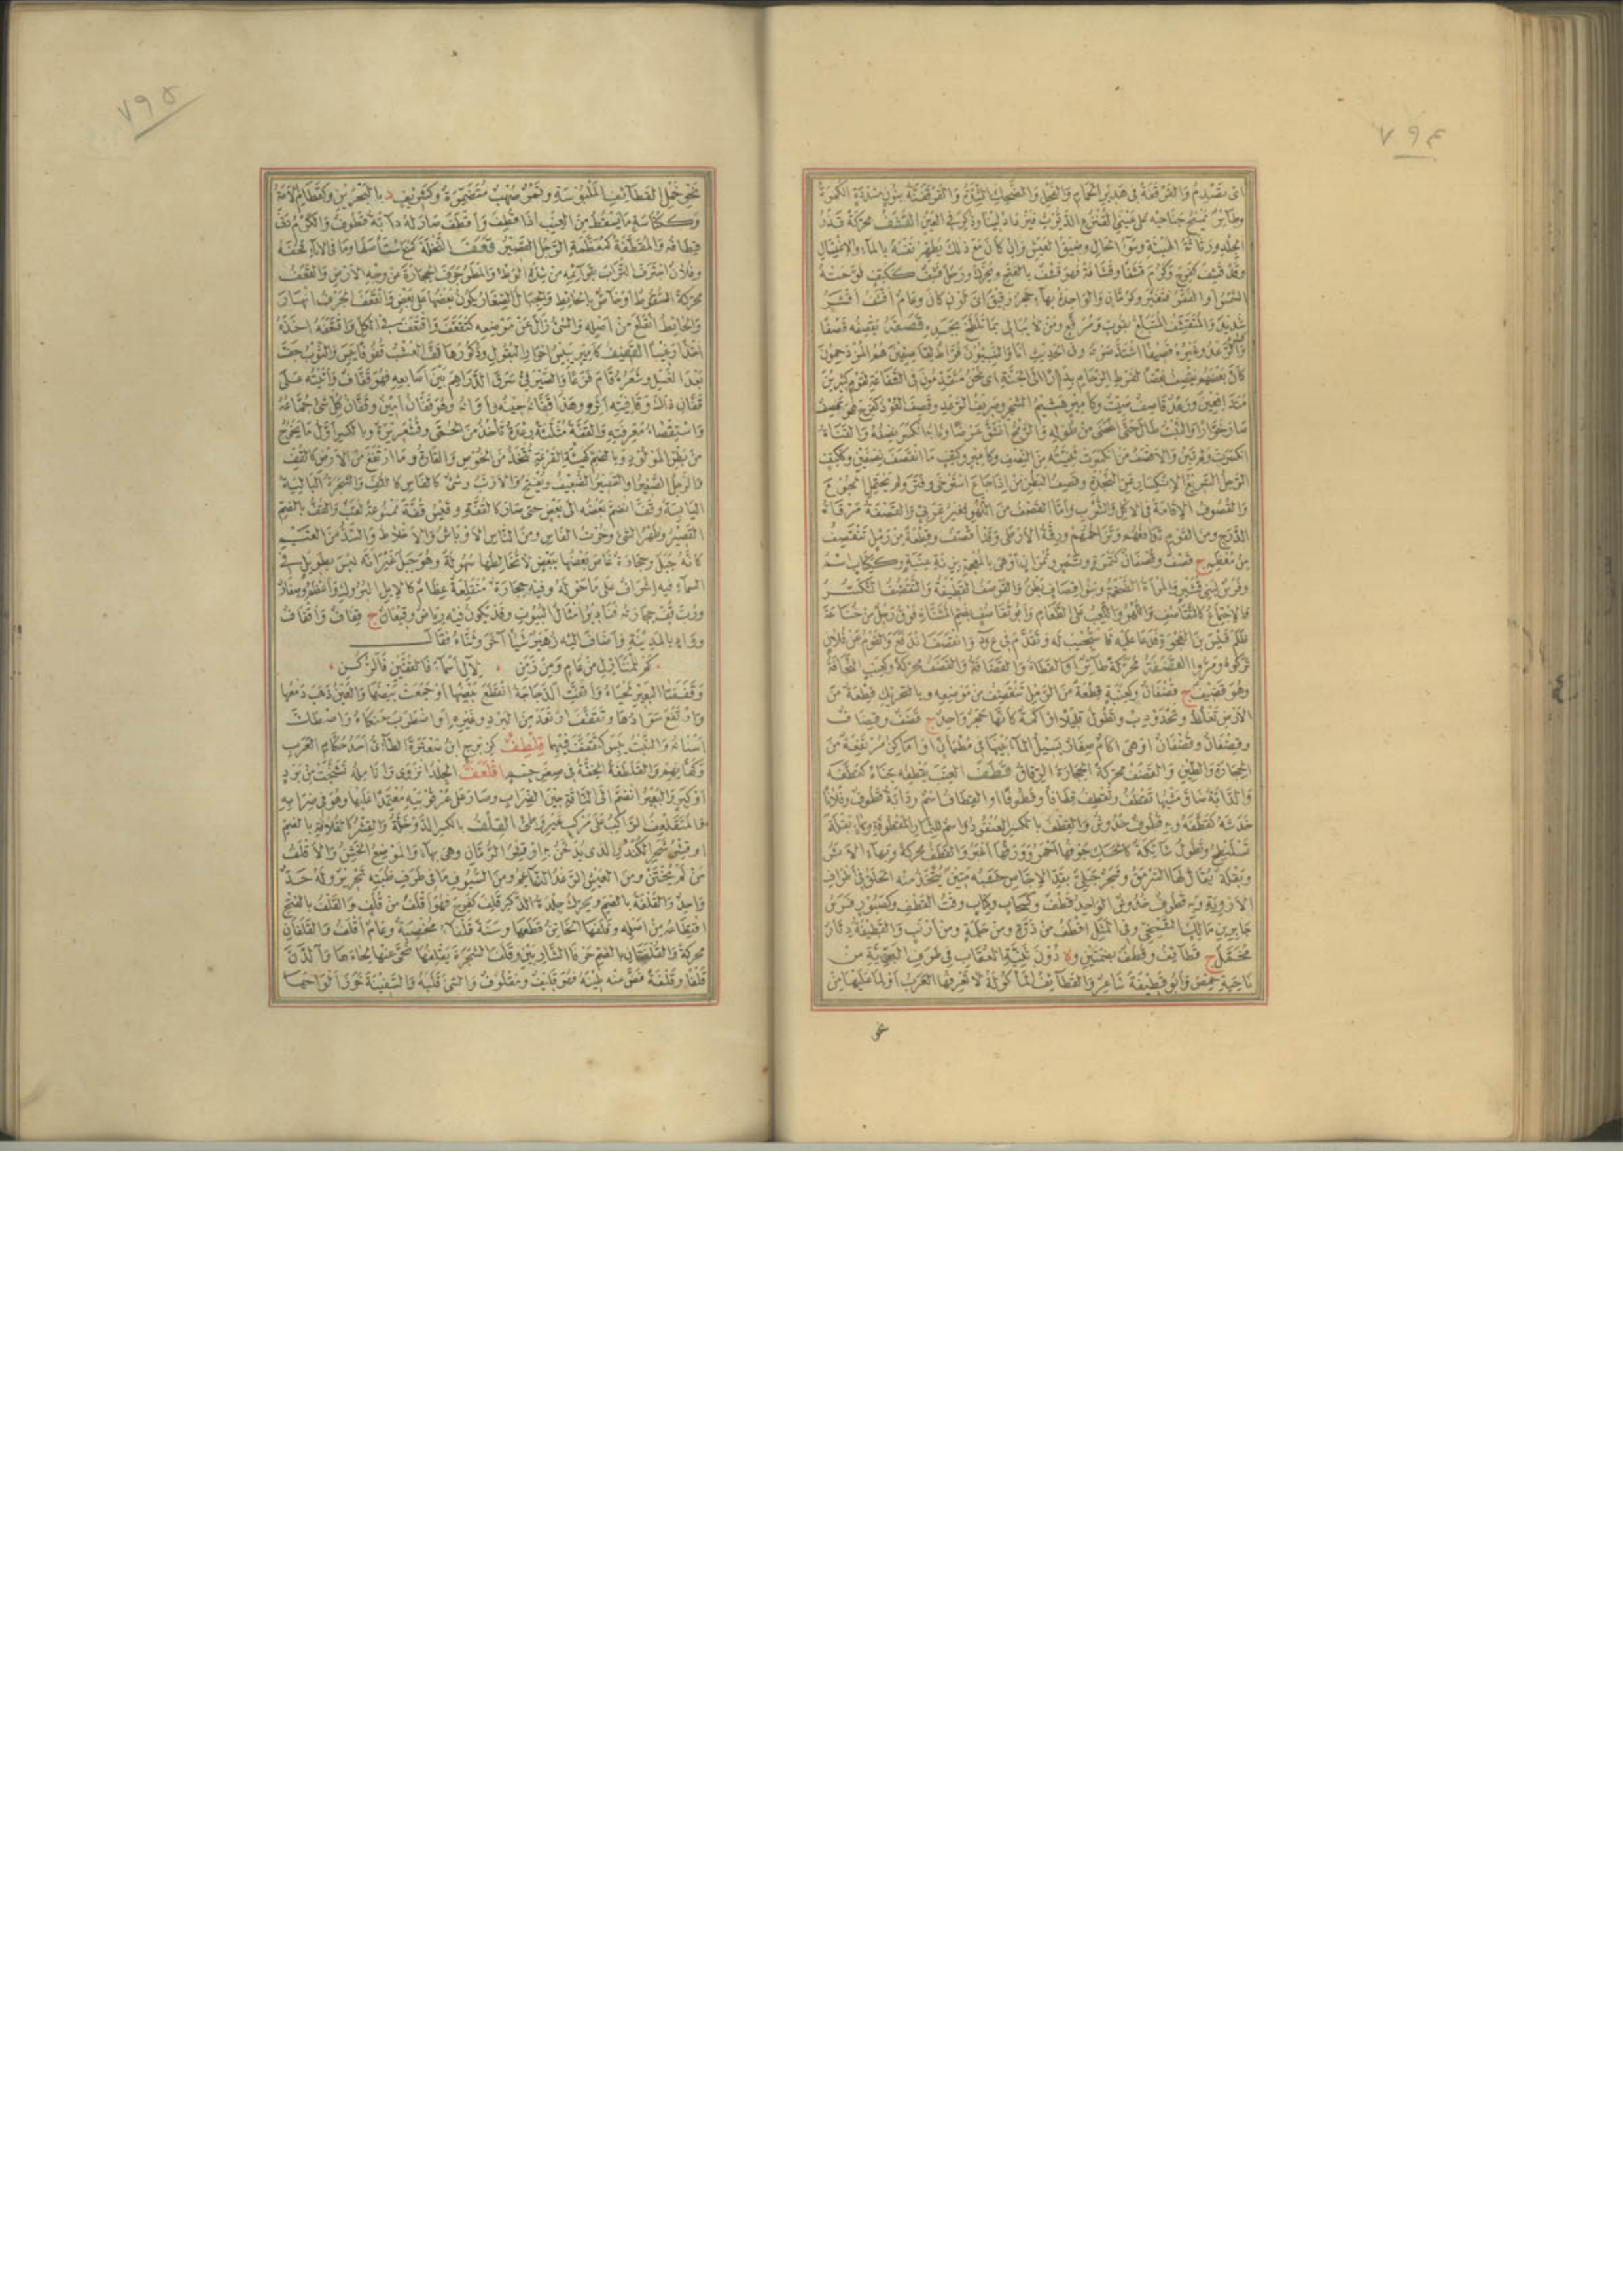 ٧٩٤
وطائر يمسح جناحيه على عيني القنذع الديوث فيزداد لينا وذكر في العين القشف محركة قذر
الجلد ورثاثة الهيئة وسوء الحال وضيق العيش وإن كان مع ذلك يطهر نفسه بالماء والاغتسال
وقد قشف كفرح وكرم قشفا وقشافة فهو قشف بالفتح ويحرك ورجل قشف ككتف لوحته
الشمس أو الفقر فتغير وكرمان والواحدة بهاء حجر رقيق أي لون كان وعام أقشف أقشر
شديد والمتقشف المتبلغ بقوت ومرقع ومن لا يبالي بما تلطخ بجسده قصفه يقصفه قصفا
كسره والرعد وغيره قصيفا اشتد صوته وفي الحديث أنا والنبيون فراط لقاصفين هم المزدحمون
كأن بعضهم يقصف بعضا لفرط الزحام بدارا إلى الجنة أي نحن متقدمون في الشفاعة لقوم كثيرين
متدافعين ورعد قاصف صيت وكأمير هشيم الشجر وصريف الفحل وقصف العود كفرح فهو قصف
صار خوارا والنبت طال حتى انحنى من طوله والرمح انشق عرضا ونابه انكسر نصفه والقناة
انكسرت ولم تبن والأقصف من انكسرت ثنيته من النصف وكأمير وكتف ما انقصف نصفين وككتف
الرجل السريع الانكسار عن النجدة وقصف البطن من إذا جاع استرخى وفتر ولم يحتمل الجوع
والقصوف الإقامة في الأكل والشرب وأما القصف من اللهو فغير عربي والقصفة مرقاة
الدرجة ومن القوم تدافعهم وتزاحمهم ورقة الأرطى وقد أقصف وقطعة من رمل تنقصف
من معظمه ج قصف وقصفان كتمرة وتمر وتمران أو هي بالمعجمة بزنة عنبة وككتاب اسم
وفرس لبني قشير والمرأة الضخمة وبنو قصاف بطن والقوصف القطيفة والتقصف التكسر
والاجتماع كالتقاصف واللهو واللعب على الطعام وأبو تقاصف بضم المثناة فوق رجل من خناعة
ظلم قيس بن العجوة فدعا عليه فاستجيب له وتقدم في ع و ذ وانقصف اندفع والقوم عن فلان
تركوه ومروا القضفة محركة طائر أو القطاة والقضافة والقضف محركة وكعنب النحافة
وهو قضيف ج قضفان وكعنبة قطعة من الرمل تنقضف من موضعه وبالتحريك قطعة من
الأرض تغلظ وتحدودب وتطول قليلا أو أكمة كأنها حجر واحد ج قضف وقضاف
وقضفان وقضفان أو هي آكام صغار يسيل الماء بينها في مطمإن أو أماكن مرتفعة من
الحجارة والطين والقضف محركة الحجارة الرقاق قطف العنب يقطفه جناه كقطفه
والدابة ضاق مشيها تقطف وتقطف قطافا وقطوفا أو القطاف اسم ودابة قطوف وفلانا
خدشه كقطفه وبه قطوف خدوش والقطف بالكسر العنقود واسم للثمار المقطوفة وكأنه بقلة
تسلنطح وتطول شائكة كالحسك جوفها أحمر وورقها أغبر والقطف محركة وبهاء الأثر
وبقلة يقال لها السرمق وشجر جبلي بقدر الإجاص خشبه متين يتخذ منه الحلق في أطراف
الأروية وبه قطوف خدوش الواحد قطف وكسحاب وكتاب وقت القطف وكصبور فرس
جابر بن مالك الشمخي وفي المثل أقطف من ذرة ومن حلمة ومن أرنب والقطيفة دثار
مخمل ج قطائف وقطف بضمتين و ة دون ثنية العقاب في طرف البرية من
ناحية حمص وأبو قطيفة شاعر والقطائف المأكولة لا تعرفها العرب أو لما عليها من
نحو
٧٩٥
نحو خمل القطائف الملبوسة وتمر صهب متضمرة وكشريف د بالبحرين وكقطام الأمة
وككناسة ما يسقط من العنب إذا قطف وأقطف صار له دابة قطوف والكرم دنا
قطافه والمقطفة كمعظمة الرجل القصير قعف النخلة كمنع استأصلها وما في الإناء قحفه
وفلان اجترف التراب بقوائمه من شدة الوطء والمطر جرف الحجارة عن وجه الأرض والقعف
محركة السقوط أو خاص بالحائط والجبال الصغار يكون بعضها على بعض وانقعف الجرف انهار
والحائط انقلع من أصله والشيء زال عن موضعه كتقعف واقتعف في الكل واقتعفه أخذه
أخذا رغيبا القفيف كأمير يبيس أحرار البقول وذكورها قف العشب قفوفا يبس والثوب جف
بعد الغسل وشعره قام فزعا والصيرفي سرق الدراهم بين أصابعه فهو قفاف وأتيته على
قفان ذلك وقافيته أثره وهذا قفانه حينه وأوانه وهو قفان أمين وقفان كل شيء جماعه
واستقصاء معرفته والقفة مثلثة رعدة تأخذ من الحمى وقشعريرة وبالكسر أول ما يخرج
من بطن المولود وبالضم كهيئة القرعة تتخذ من الخوص والقارة وما ارتفع من الأرض كالقف
والرجل الصغير أو القصير الضعيف ويفتح والأرنب وشيء كالفأس كالقف والشجرة البالية
اليابسة وقف انضم بعضه إلى بعض حتى صار كالقفة وقيس قفة ممنوعة لقب والقف بالضم
القصير وظهر الشيء وخرت الفأس ومن الناس الأوباش والأخلاط والسد من الغيم
كأنه جبل وحجارة غاص بعضها ببعض لا تخالطها سهولة وهو جبل غير أنه ليس بطويل في
السماء فيه إشراف على ما حوله وفيه حجارة متقلعة عظام كالإبل البروك وأعظم وصغار
ورب قف حجارته فنادير أمثال البيوت وقد يكون فيه رياض وقيعان ج قفاف وأقفاف
وواد بالمدينة وأضاف إليه زهير شيئا آخر وثناه فقال
كم للمنازل من عام ومن زمن • لآل أسماء فالقفين فالركن
وقفقفا البعير لحياه وأقفت الدجاجة انقطع بيضها أو جمعت بيضها والعين ذهب دمعها
وارتفع سوادها وتقفقف ارتعد من البرد وغيره أو اضطرب حنكاه واصطكت
أسنانه والنبت يبس كتقفقف فيهما قلطف كزبرج ابن صعترة الطائي أحد حكام العرب
وكهانهم والقلطفة الخفة في صغر جسم اقلعف الجلد انزوى وأنامله تشنجت من برد
أو كبر والبعير انضم إلى الناقة حين الضراب وصار على عرقوبيه معتمدا عليها وهو في ضرابه
والمتقلعف الراكب على مركب غير وطيء القلف بالكسر الدوخلة والقشر كالقلافة بالضم
أو قشر شجر الكندر الذي يدخن به أو قشر الرمان وهي بهاء والموضع الخشن والأقلف
من لم يختتن ومن العيش الرغد الناعم ومن السيوف ما في طرف ظبته تحزيز وله حد
واحد والقلفة بالضم ويحرك جلدة الذكر قلف كفرح فهو أقلف من قلف والقلف بالفتح
اقتطاعه من أصله وقلفها الخاتن قطعها وسنة قلفاء مخصبة وعام أقلف والقلفان
محركة والقلفتان بالضم حرفا الشاربين وقلف الشجرة يقلفها نحى عنها لحاءها والدن
قلفا وقلفة فض عنه طينه فهو قليف ومقلوف والشيء قلبه والسفينة خرز ألواحها